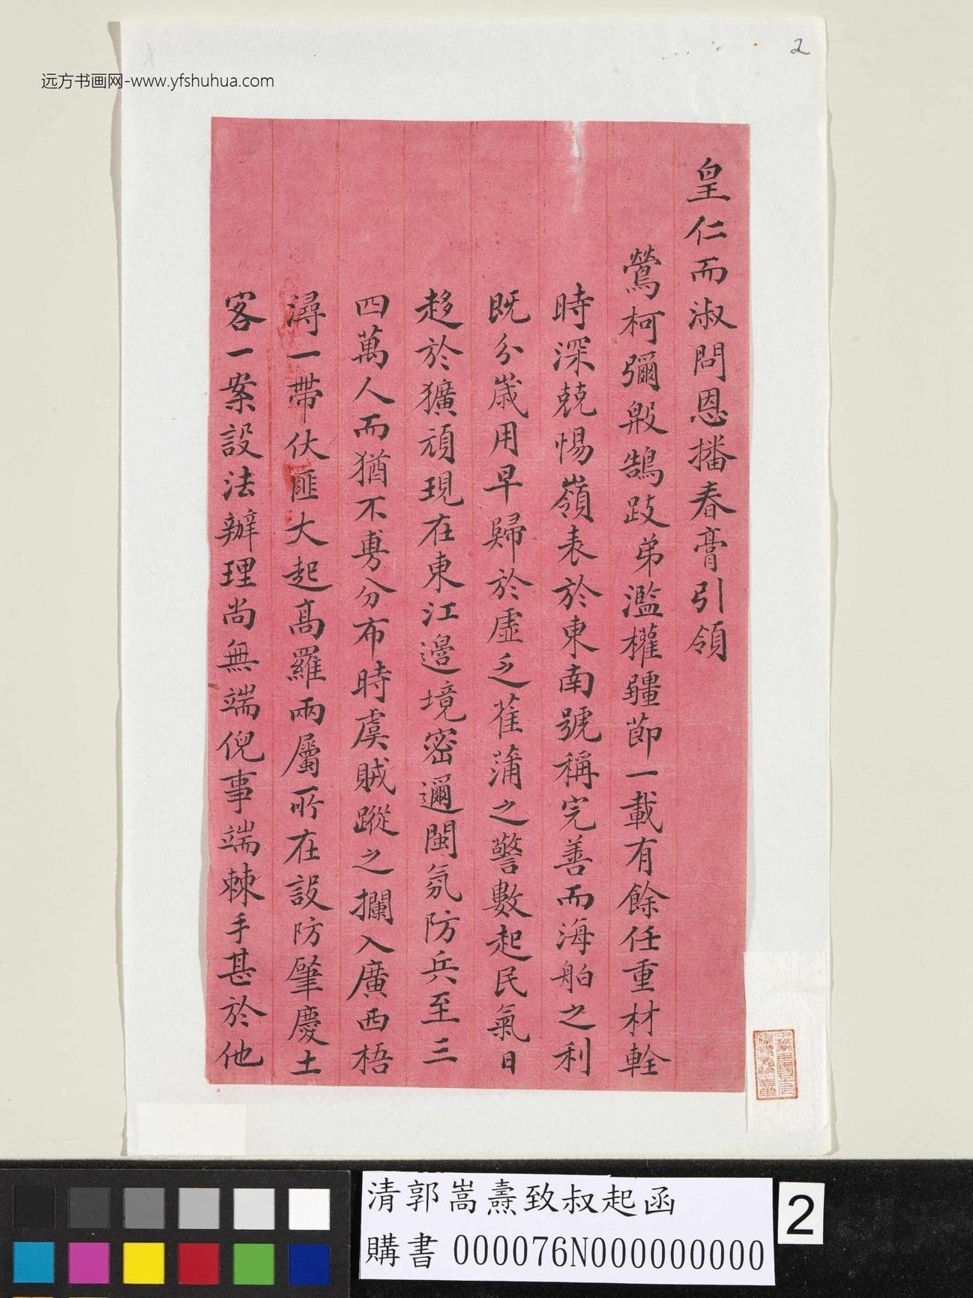 2
远方书画网-www.yfshuhua.com
皇仁而淑問恩播春膏引領
鶯柯彌殷鵠跂弟濫權疆節一載有餘任重材輇
時深兢惕嶺表於東南號稱完善而海舶之利
既分歲用早歸於虛乏萑蒲之警數起民氣日
趍於獷頑現在東江邊境密邇閩氛防兵至三
四萬人而猶不旉分布時虞賊蹤之攔入廣西梧
潯一帶伏匪大起高羅兩屬所在設防肇慶土
客一案設法辦理尚無端倪事端棘手甚於他
清郭嵩燾致叔起函
購書 000076N000000000
2